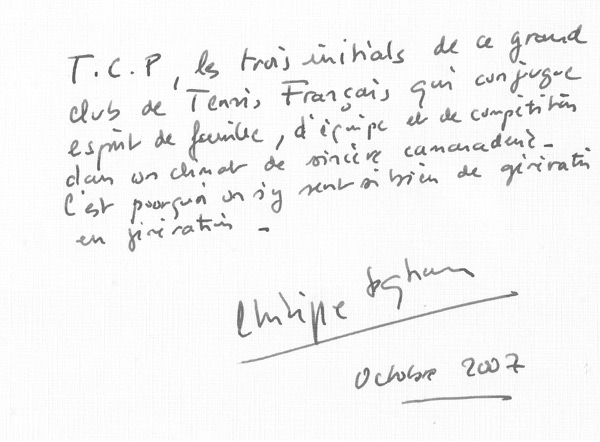 T.C.P, les trois initials de ce grand
club de Tennis Français qui conjugue
esprit de famille, d'équipe et de compétition
dans un climat de sincère camaraderie.
C'est pourquoi on s'y sent si bien de génération
en génération.
Philippe
Octobre 2007